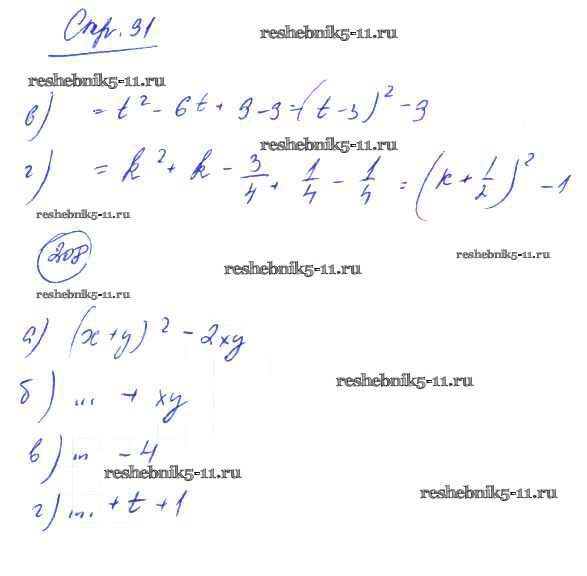 Стр. 91
reshebnik5-11.ru
reshebnik5-11.ru
в) = t² - 6t + 9 - 9 = (t - 3)² - 9
reshebnik5-11.ru
г) = k² + k - 3/4 + 1/4 - 1/4 = (k + 1/2)² - 1
reshebnik5-11.ru
208
reshebnik5-11.ru
reshebnik5-11.ru
reshebnik5-11.ru
а) (x + y)² - 2xy
reshebnik5-11.ru
б) ... + xy
в) ... - 4
reshebnik5-11.ru
reshebnik5-11.ru
г) ... + t + 1